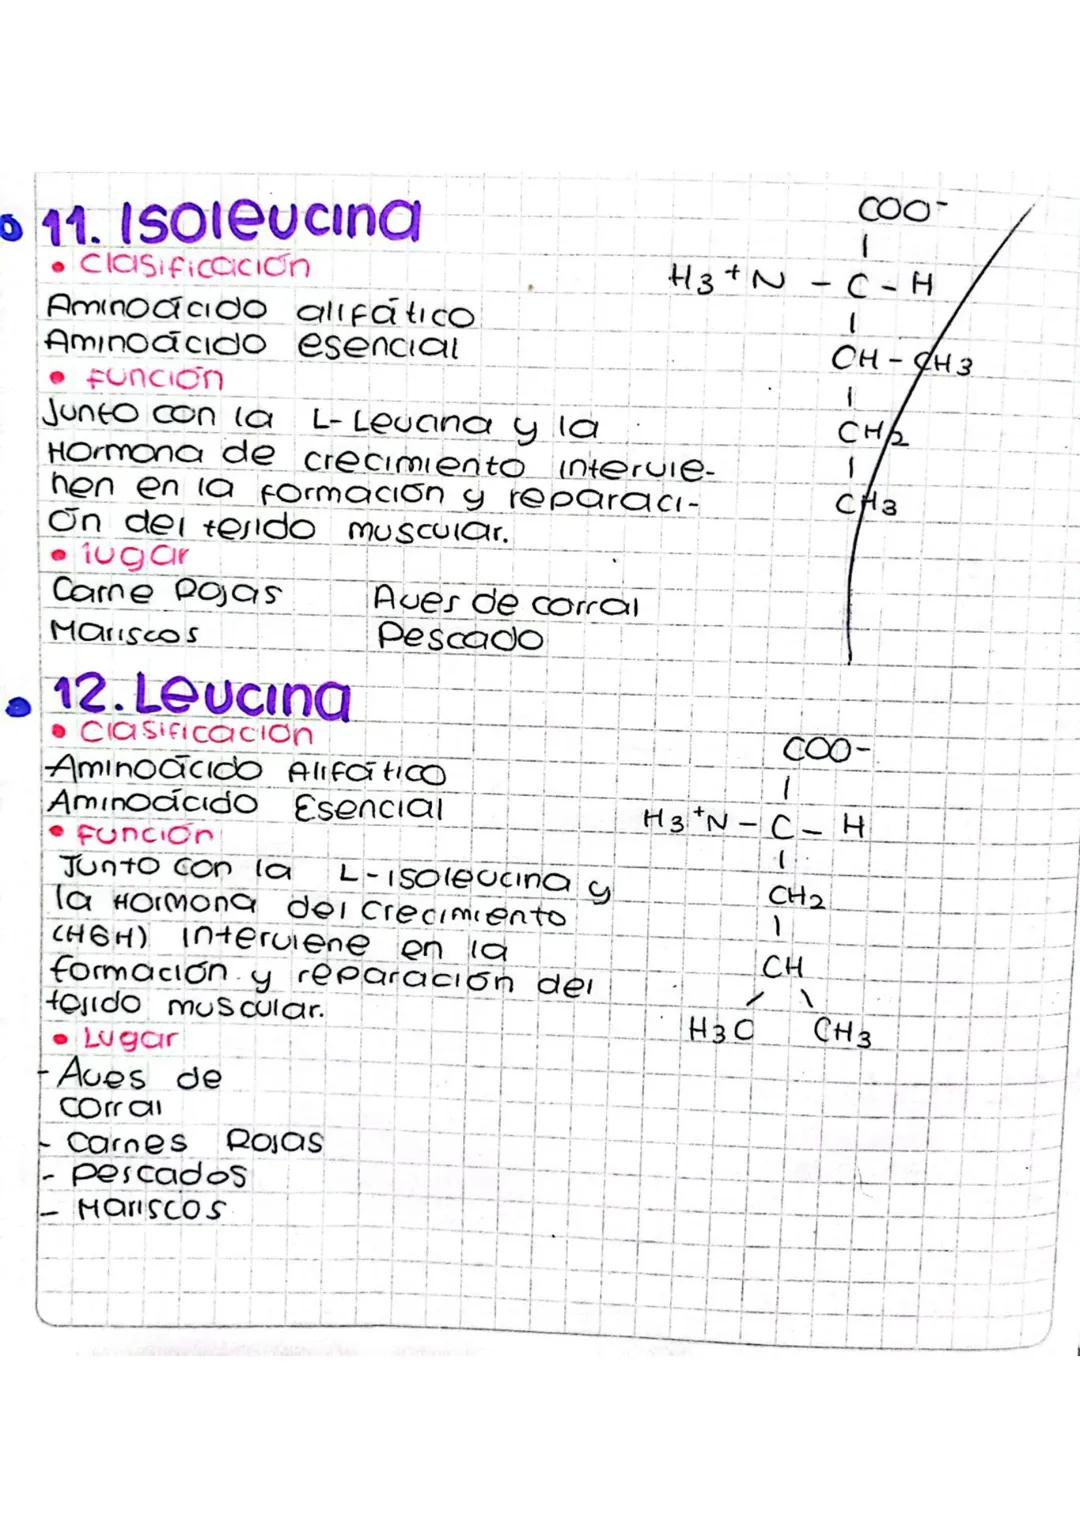 11. Isoleucina
• Clasificación
Aminoácido alifático
Aminoácido esencial
• Función
Junto con la L-Leucina y la
Hormona de crecimiento intervie-
nen en la formación y reparaci-
ón del tejido muscular.
• lugar
Carne Rojas Aves de corral
Mariscos Pescado
COO-
H3+N - C - H
CH - CH3
CH2
CH3
12. Leucina
• Clasificación
Aminoácido Alifático
Aminoácido Esencial
• Función
Junto con la L-isoleucina y
la Hormona del Crecimiento
(HGH) Interviene en la
formación y reparación del
tejido muscular.
• Lugar
- Aves de
corral
- Carnes Rojas
- pescados
- Mariscos
COO-
H3+N - C - H
CH2
CH
H3C CH3